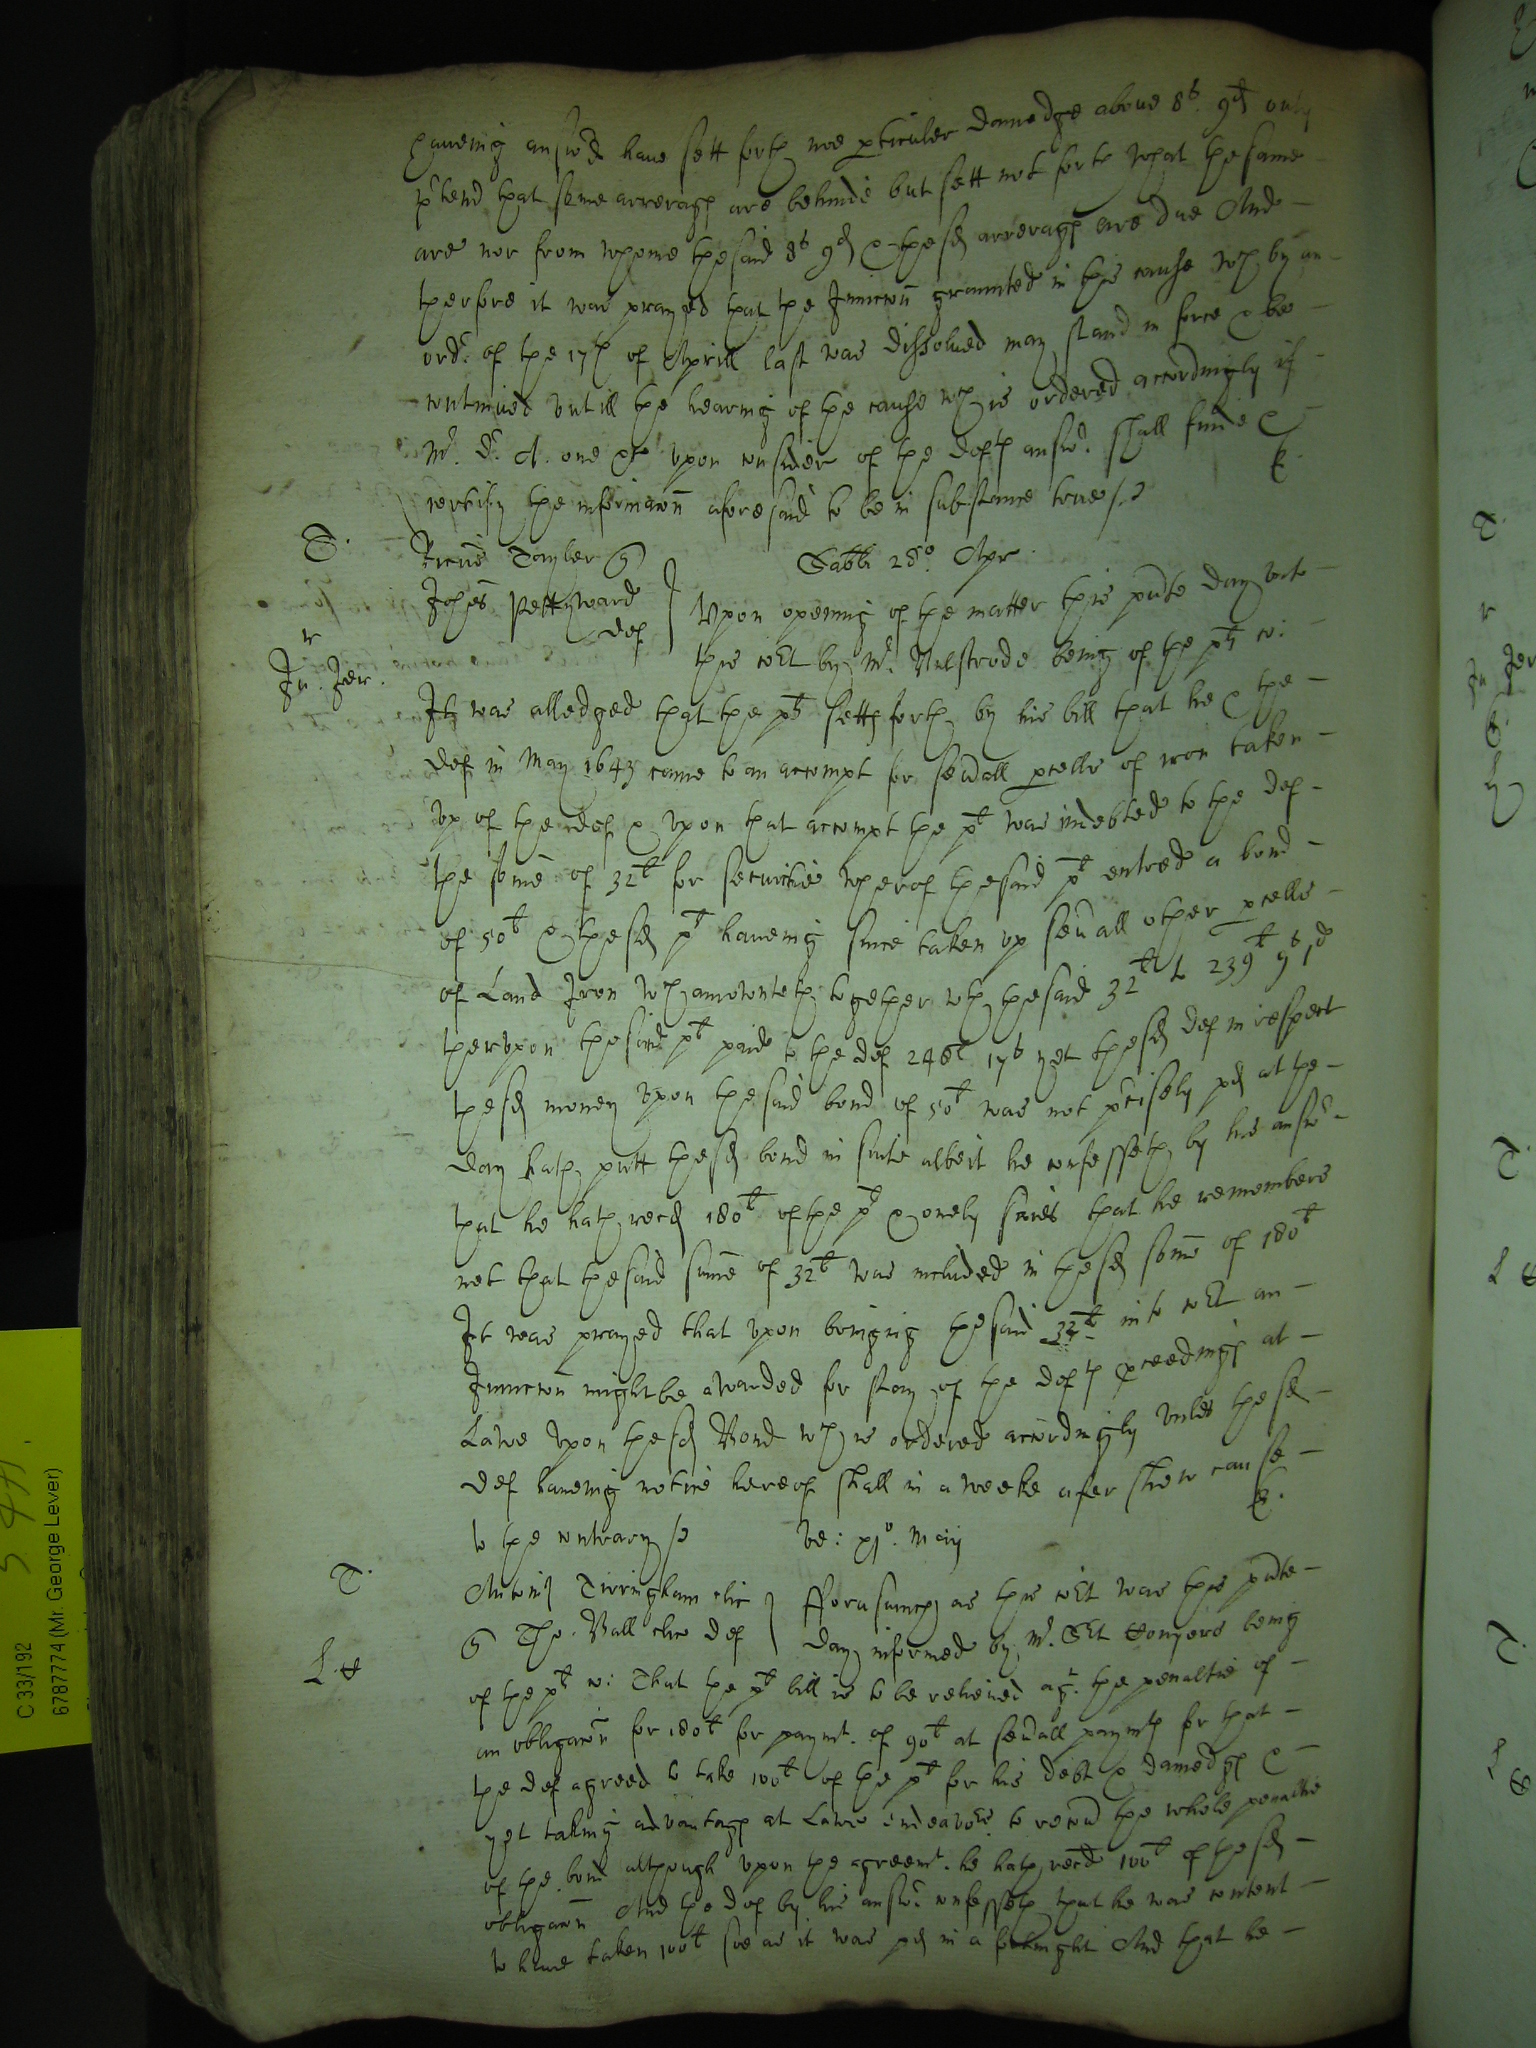 haueing answ:d haue sett forth noe pticuler damedge aboue 8s. 9d only
p'tend that some arrerages are behinde but sett not forth what the same
are nor from whome the said 8s 9d & the sd arrerages are due And
therfore it was prayed that the Iniuccon graunted in this cause wch by an
ordr. of the 17th of Aprill last was dissolued may stand in force & be
continued vntill the hearing of the cause wch is ordered accordingly if
Mr. Dr. A. one &c vpon consider of the defts answ. shall finde &
certify the informacon aforesaid to be in substance true
T.
Tayler q
Sabbi 28o. Apr
Johes Pettyward
def
Vpon opening of the matter this pnte day vnto
r
this cort by Mr. Bulstrode being of the plt co:
Ju: Jer.
It was alledged that the plt setts forth by his bill that he & the
def in May 1643 came to an accompt for seuall pcells of iron taken
vp of the def & vpon that accompt the plt was indebted to the def
the some of 32l for securitie wherof the said plt entred a bond
of 50l & the sd plt haueing since taken vp seuall other pcells
of Land Iron wch amownteth together wth the said 32l to 239l 9s 1d
thervpon the said plt paid to the def 248l 17s yet the sd def in respect
the sd money vpon the said bond of 50l was not p'cisely pd at the
day hath putt the sd bond in suite albeit he confesseth by his answ
that he hath recd 180l of the plt & onely saies that he remembers
not that the said sume of 32l was included in the sd some of 180l
It was prayed that vpon bringing the said 32l into cort an
Iniuccon might be awarded for stay of the defts pceedings at
Lawe vpon the sd Bond wch is ordered accordingly vnles the sd
def haueing notice hereof shall in a weeke after shew cause
to the contrary
ve: xjo. Maij
T.
Tirringham clic
Forasmuch as this cort was this pnte
q Tho. Ball clic def
day informed by Mr. Srt Conyers being
of the plt co: That the plt bill is to be releiued agt. the penaltie of
an obligacon for 180l for paymt. of 90l at seuall paymts for that
the def agreed to take 100l of the plt for his debt & damedges &
yet taking advantage at Lawe endeavors. to recou the whole penaltie
of the bond although vpon the agreemt. he hath recd 100l of the sd
obligacon And the def by his answ confesseth that he was content
to haue taken 100l soe as it was pd in a fortnight And that he
C 33/192
6787774 (Mr. George Lever)